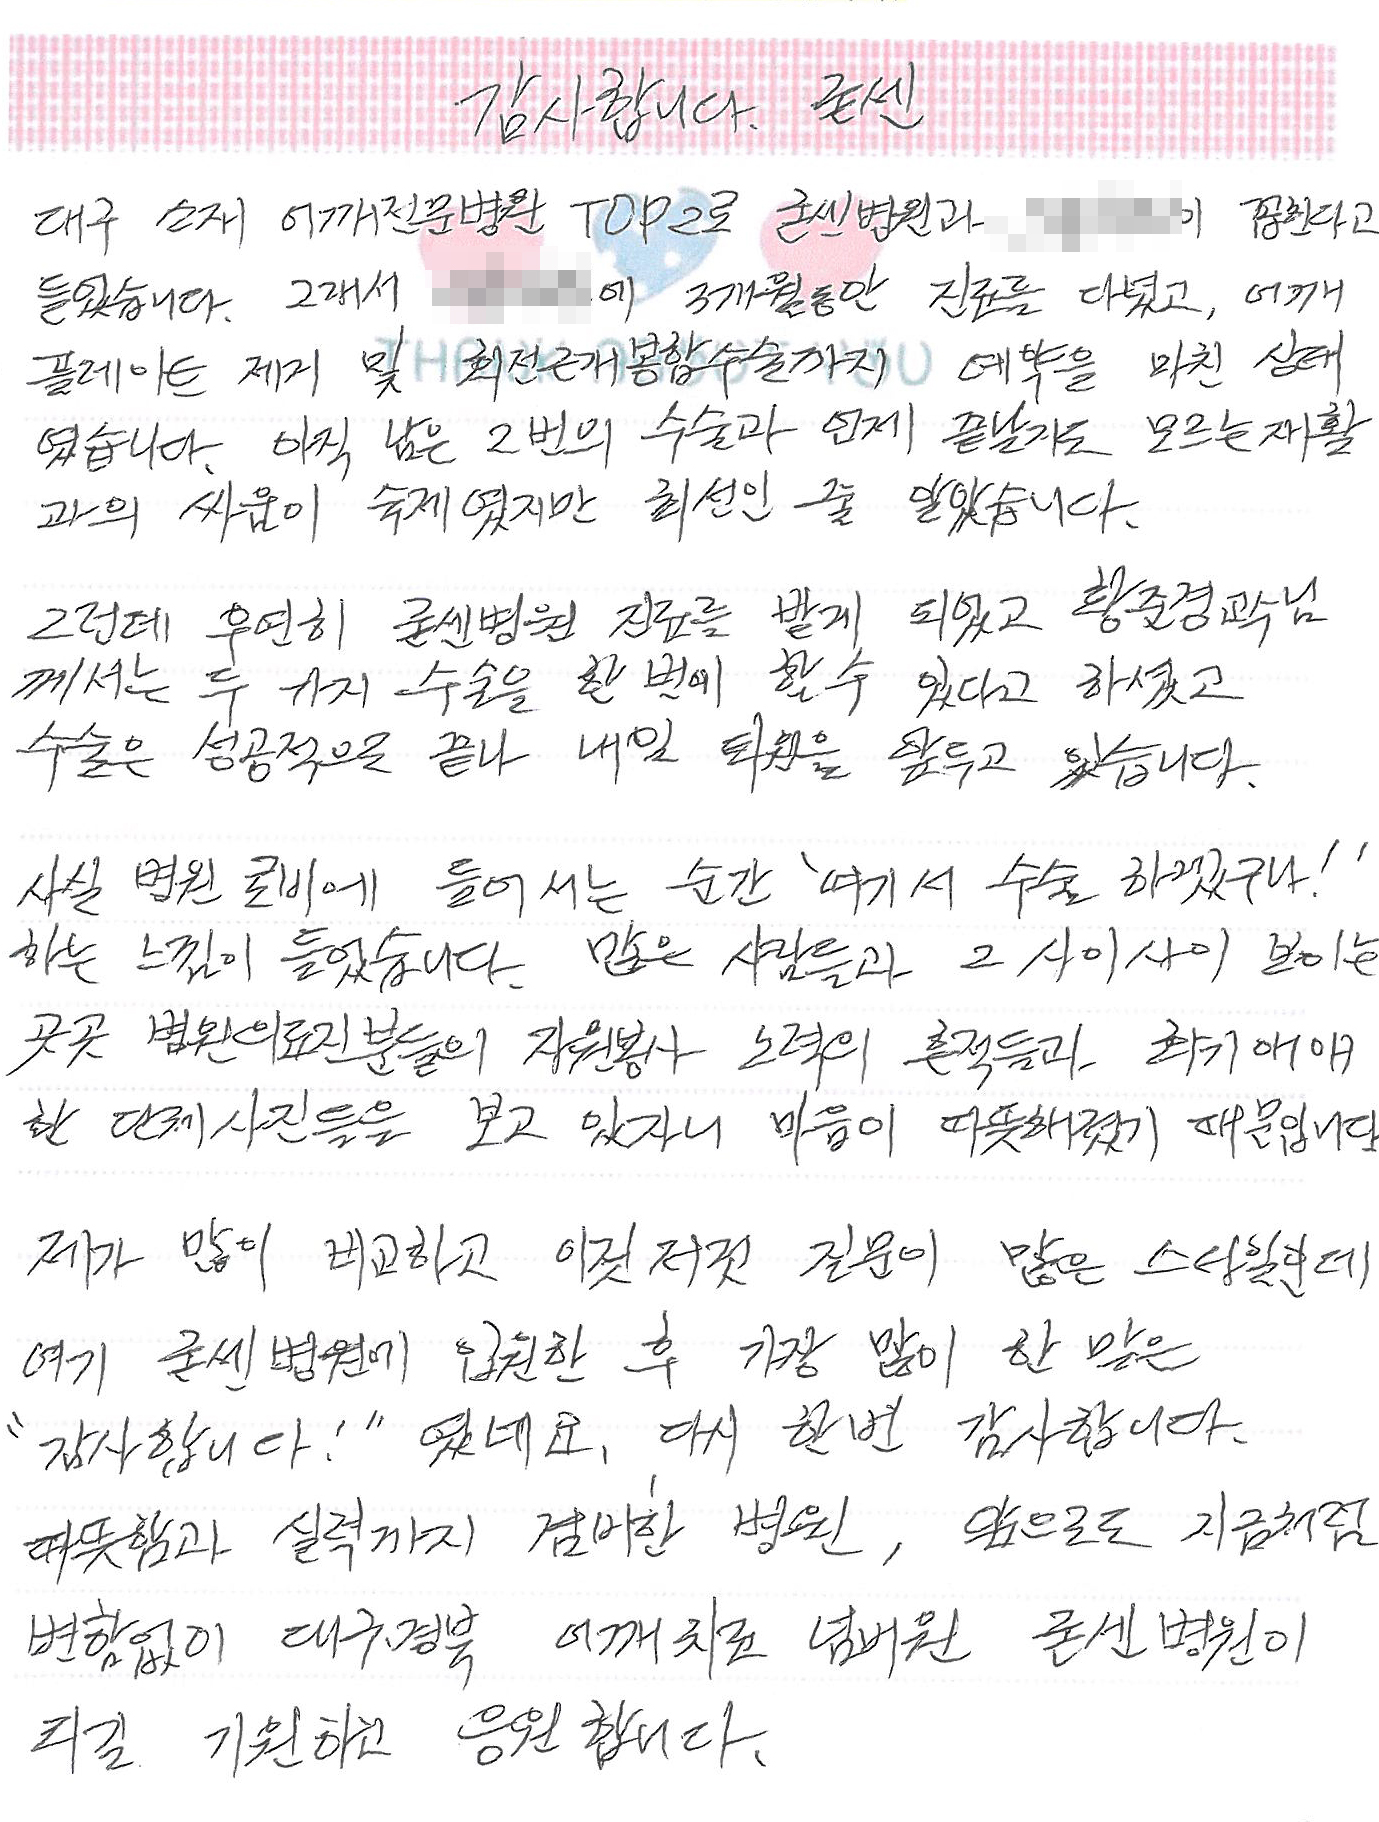 감사합니다. 굳센
대구 소재 어깨전문병원 TOP2로 굳센병원과 이 꼽힌다고
들었습니다. 그래서 에 3개월동안 진료를 다녔고, 어깨
플레이트 제거 및 회전근개봉합수술까지 예약을 마친 상태
였습니다. 아직 남은 2번의 수술과 언제 끝날지도 모르는재활
과의 싸움이 숙제였지만 최선인 줄 알았습니다.
그런데 우연히 굳센병원 진료를 받게 되었고 황준경교수님
께서는 두 가지 수술을 한 번에 할 수 있다고 하셨고
수술은 성공적으로 끝나 내일 퇴원을 앞두고 있습니다.
사실 병원 로비에 들어서는 순간 '여기서 수술 하겠구나!'
하는 느낌이 들었습니다. 많은 사람들과 그 사이사이 보이는
곳곳 병원의료진분들의 자원봉사 노력의 흔적들과 화기애애
한 단체사진들을 보고 있자니 마음이 따뜻해졌기 때문입니다
제가 많이 비교하고 이것저것 질문이 많은 스타일인데
여기 굳센병원에 입원한 후 가장 많이 한 말은
"감사합니다!" 였네요. 다시 한번 감사합니다.
따뜻함과 실력까지 겸비한 병원, 앞으로도 지금처럼
변함없이 대구.경북 어깨치료 넘버원 굳센병원이
되길 기원하고 응원합니다.